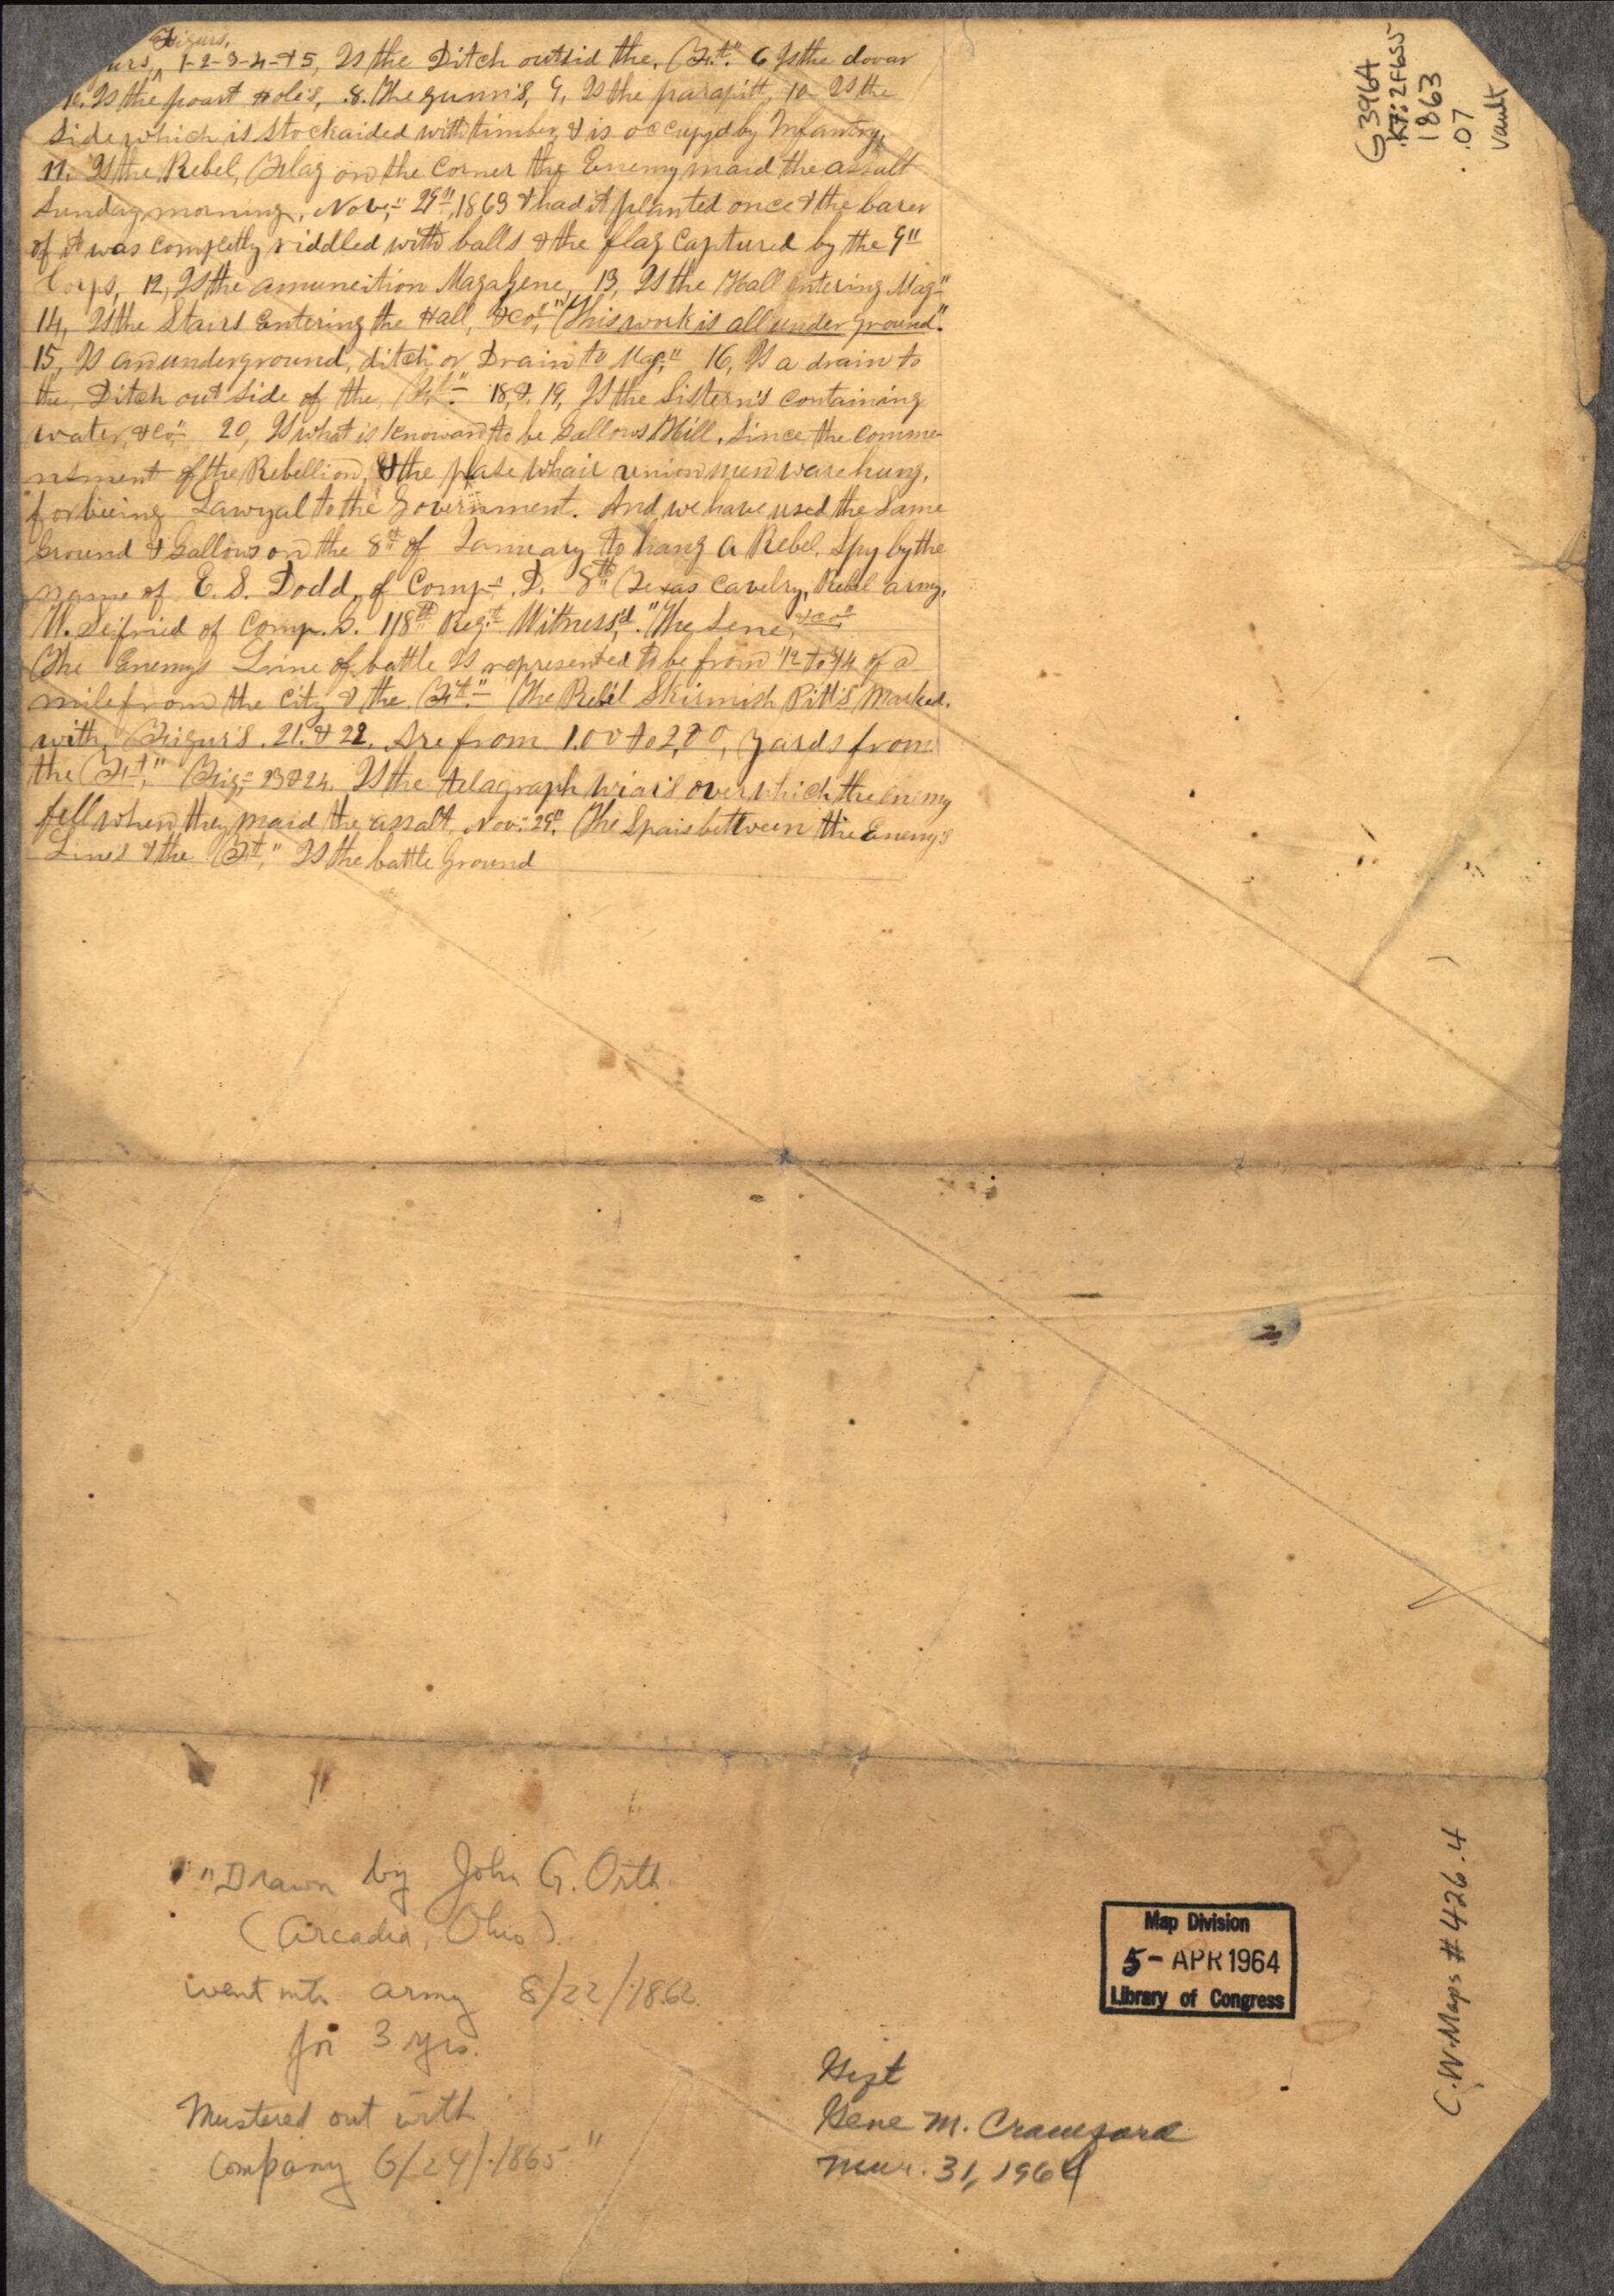 Figurs,
urs, 1-2-3-4-&5, Is the Ditch outsid the, Ft." 6 Is the dovar
Is the poart Hole's, .8. The gunn's, 9, Is the parapitt, 10 Is the
Side which is Stockaided with timber, & is occupyd by Infantry,
11. Is the Rebel, Flag on the Corner the Enemy maid the assalt
Sunday morning, Nov;" 29", 1863 & had it planted once & the barer
of it was completly riddled with balls & the flag Captured by the 9"
Corps, 12, Is the amuneition Magazene, 13, Is the Hall Entering Mag"
14, Is the Stairs Entering the Hall, &co," "This work is all under ground".
15, Is an underground, ditch or Drain to Mag," 16, Is a drain to
the, Ditch out Side of the Ft." 18, & 19, Is the Sistern's Containing
water, &co," 20, Is what is knowan to be Gallows Hill, Since the Comme-
nsment of the Rebellion, & the plase whair union men ware hung,
for bieing Lawyal to the Government. And we have used the Same
Ground & Gallows on the 8th of January to hang a Rebel, Spy by the
name of E. S. Dodd, of Comp" D. 8th Texas Cavelry, Rebel army,
W. Seifried of Comp. G. 118th Regt Witness'd. "The Sene, &co"
The Enemys Line of battle Is represented to be from 1/2 to 3/4 of a
mile from the City & the Ft." The Rebel Skirmish Pitt's Marked,
with, Feigur's .21. & 22. Are from 1.00 to 2,00, Yards from
the Ft," Fig;" 23 & 24. Is the telagraph wiair's over which the enemy
fell when they maid the assalt, Nov; 29" The Spais between the Enemy's
Lines & the Ft," Is the battle Ground
G3964
.K7:2F6S5
1863
.07
Vault
"Drawn by John G. Orth
(Arcadia, Ohio)
went into army 8/22/1862
for 3 yrs.
Mustered out with
Company 6/24/1865"
Map Division
5 - APR 1964
Library of Congress
Gift
Gene M. Crawford
Mar. 31, 1964
C.W. Maps # 426.4